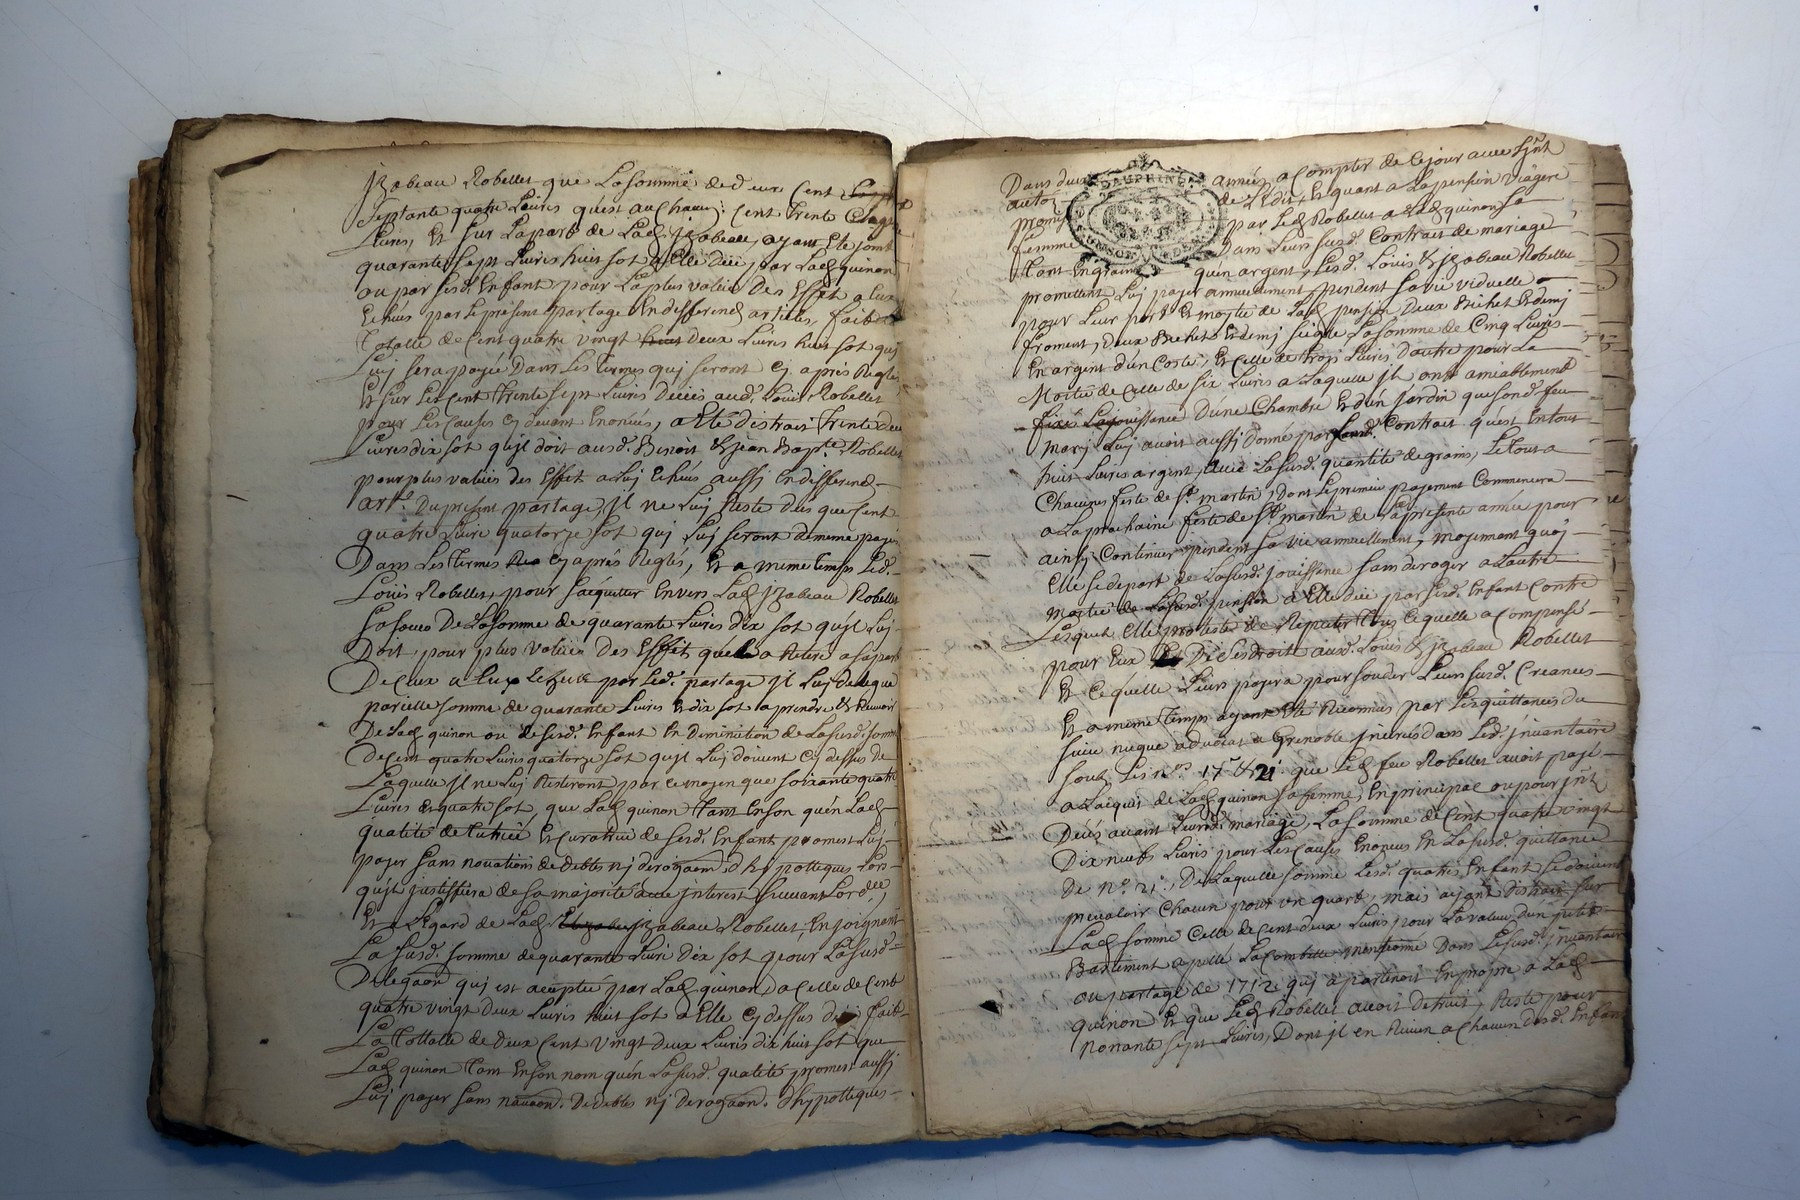 jzabeau Robellet que La somme de deux Cent
Septante quatre Livres quest au Chacun: Cent trente Cinq
Livres, Et sur La part de Lad. jzabeau, ayant Eté joint
quarante sept Livres huit sot a Elle deüe par Lad. quinon
ou par sesd. Enfant pour La plus valüe Des Effet a Eux
Echeus par Le présent partage En differend articles, fait La
Totalle de Cent quatre vingt deux Livres huit sot quj
Luj sera payée Dans Les termes quj seront Cj après Reglés
Et sur Les Cent trente sept Livres deües aud. Loüis Robellet
pour Les Causes Cj devant Enoncés, a Eté distrait trente deux
Livres dix sot quil doit ausd. Benoit & jean Bapt.e Robellet
pour plus valües des Effet a Luj Echeus aussi En differend
art.s Du present partage, jl ne Luj Reste dus que Cent
quatre Livre quatorze sot quj Luj seront de meme payés
Dans Les termes Cj après Reglés, Et a meme temps Led.
Loüis Robellet, pour s'acquitter Envers Lad. jzabeau Robellet
Sa soeur De La somme de quarante Livres dix sot quil Luj
Doit pour plus valüe Des Effet quelle a Retiré a sa part
De Ceux a Luj Echeus par Led. partage jl Luj delegue
pareille somme de quarante Livres Et dix sot a prendre & Recevoir
De Lad. quinon ou de sesd. Enfant En Diminution de La susd. somme
De Cent quatre Livres quatorze sot quil Luj doivent Cj dessus De
Lequelle jl ne Luj Resteront par ce moyen que soixante quatre
Livres & quatre sot, que Lad. quinon tant En son qu'en Lad.
qualité de tutrice Et curatrice de sesd. Enfant promet Luj
payer sans novation de debtes nj derogaon d'hypotteques Lors
qu'jl justiffiera de sa majorité avec jnterest suivant Lord.ce,
Et a L'Egard de Lad. jzabeau Robellet, En joignant
La susd. somme de quarante Livre Dix sot pour La susd.
Delegaon quj est aceptée par Lad. quinon, a Celle de Cent
quatre vingt deux Livres huit sot a Elle Cj dessus deüe fait
La tottalle de Deux Cent vingt deux Livres dix huit sot que
Lad. quinon tant En son nom qu'en La susd. qualité promet aussi
Luj payer sans novaon. De debtes nj Derogaon. d'hypotteques
Dans deux années a Compter de Ce jour avec jnt
au de L'Edit, Et quant a La pension viagere
promise par Led. Robellet a Lad. quinon sa
femme Dans Leurs susd. Contract de mariage
tant En grains qu'en argent, Lesd. Loüis & jzabeau Robellet
promettent Luj payer annuelement pendent sa vie viduelle
pour Leur part Et moytié de Lad. pension deux Bichet Et demj
froment, deux Bichet Et demj seigle La somme de Cinq Livres
En argent d'un Coste, Et Celle de trois Livres d'autre pour La
Moitié de Celle de six Livres a Laquelle jl ont amiablement
fixés La joüissance D'une Chambre Et d'un jardin que sond. feu
Mary Luj avoit aussi donné par Contract qu'est En tout
huit Livres argent, avec La susd. quantité de grains, Le tout a
Chacune feste de St. martin, dont Le premier payement Commencera
a La prochaine feste de St. martin de La presente année pour
ainsj Continuer pendent sa vie annuellement, moyennant quoj
Elle se depart de La susd. joüissance sans deroger a L'autre
Moytié de La susd. pension a Elle deüe par sesd. Enfant Contre
Lesquels Elle proteste de Repeter tous Ce quelle a Compensé
pour Eux De ses droit ausd. Loüis & jzabeau Robellet
Et Ce quelle Leurs payera pour souder Leurs susd. Creances
Et a meme temps ayant Eté Reconnus par Les quittances du
sieur advocat a Grenoble jnserés dans Led. jnventaire
soub Les n.os 17 & 21 que Led. feu Robellet avoit payé
a L'acquis de Lad. quinon sa femme, En principal ou pour jnt
Deüs avant Leursd. mariage, La somme de Cent quatre vingt
Dix neufs Livres pour Les Causes Enoncés En La susd. quittance
De n.o 21, De Laquelle somme Lesd. quatres Enfant se doivent
prevaloir Chacun pour un quart, mais ayant distrait sur
Lad. somme Celle de Cent deux Livres pour La valeur d'un petit
Bastiment apellé La Combille mentionné Dans Le susd. jnventaire
ou partage de 1712 quj apartenoit En propre a Lad.
quinon Et que Led. Robellet avoit detruit, Reste pour
Nonante sept Livres, Dont jl en Revien a Chacun Desd. Enfant
DAUPHINE